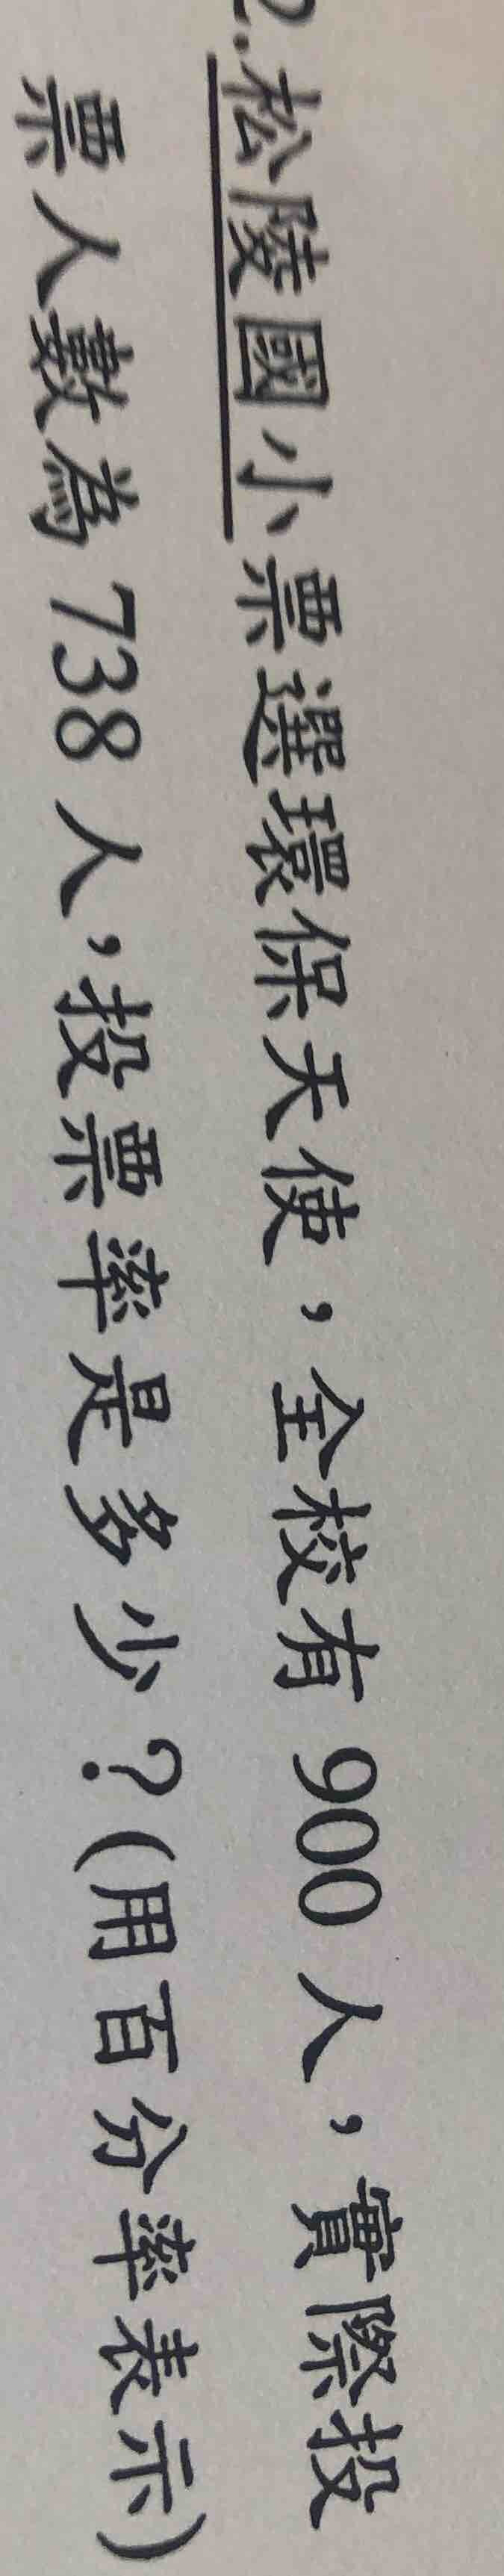 2.松陵國小票選環保天使，全校有 900 人，實際投
票人數為 738 人，投票率是多少？(用百分率表示)